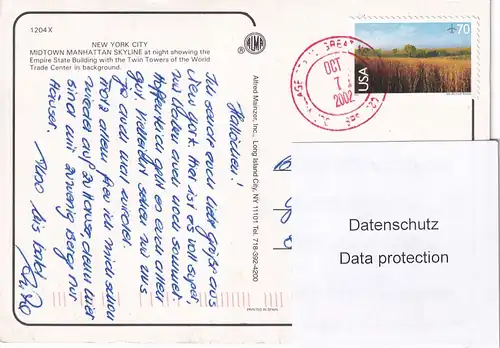 1204 X
NEW YORK CITY
MIDTOWN MANHATTAN SKYLINE at night showing the
Empire State Building with the Twin Towers of the World
Trade Center in background.
ALMA
Alfred Mainzer, Inc., Long Island City, NY 11101 Tel. 718-392-4200
PRINTED IN SPAIN
70
USA
OCT
7
2002
Hallöchen!
Ich sende euch liebe Grüße aus
New York. Hier ist es voll super,
wir haben auch noch Sommer.
Hoffentlich geht es euch allen
gut. Vielleicht sehen wir uns
ja auch mal wieder.
Trotz allem freu ich mich
wieder auf zu Hause, denn hier
sind mir zu wenig Berg nur
Häuser.
Also bis bald
Datenschutz
Data protection